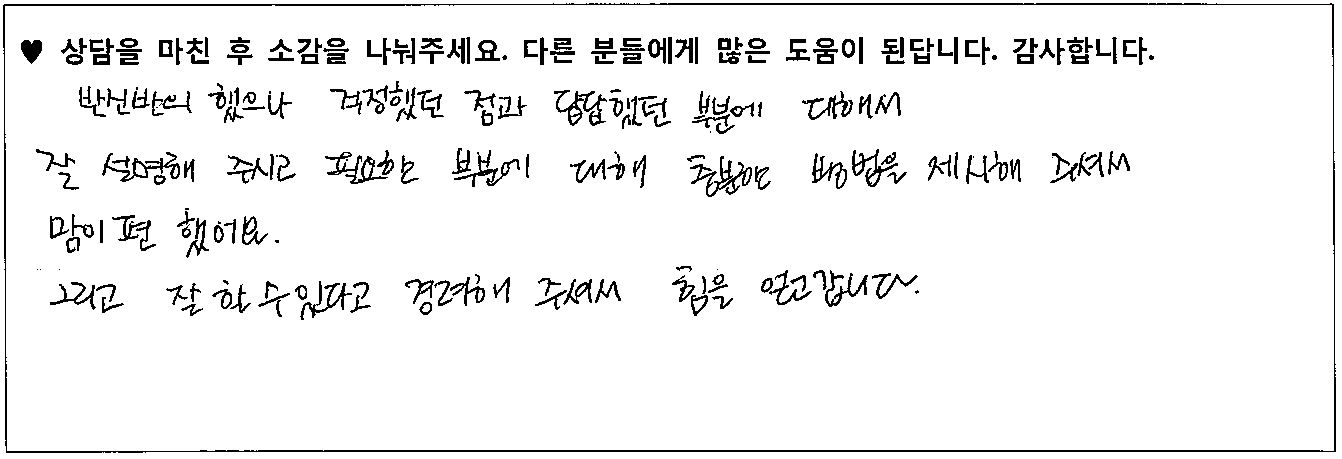 ♥ 상담을 마친 후 소감을 나눠주세요. 다른 분들에게 많은 도움이 된답니다. 감사합니다.
반신반의 했으나 걱정했던 점과 답답했던 부분에 대해서
잘 설명해 주시고 필요한 부분에 대해 충분한 방법을 제시해 주셔서
맘이 편 했어요.
그리고 잘 할 수 있다고 격려해 주셔서 힘을 얻고 갑니다.